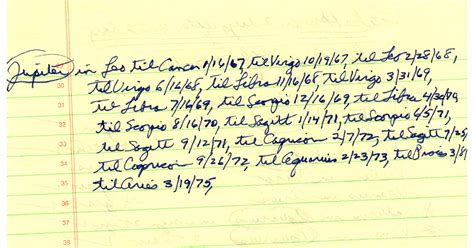 Jupiter in Leo til Cancer 1/16/67, til Virgo 10/19/67, til Leo 2/28/68,
til Virgo 6/16/68, til Libra 11/16/68, til Virgo 3/31/69,
til Libra 7/16/69, til Scorpio 12/16/69, til Libra 4/30/70,
til Scorpio 8/16/70, til Sagitt 1/14/71, til Scorpio 6/5/71,
til Sagitt 9/12/71, til Capricon 2/7/72, til Sagitt 7/25/
til Capricon 9/26/72, til Aquarius 2/23/73, til Pisces 3/8/
til Aries 3/19/75,
30
31
32
33
34
35
38